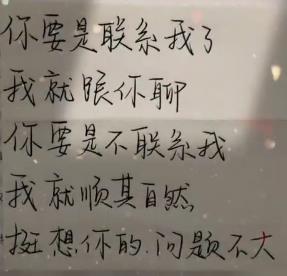 你要是联系我了
我就跟你聊
你要是不联系我
我就顺其自然
挺想你的.问题不大